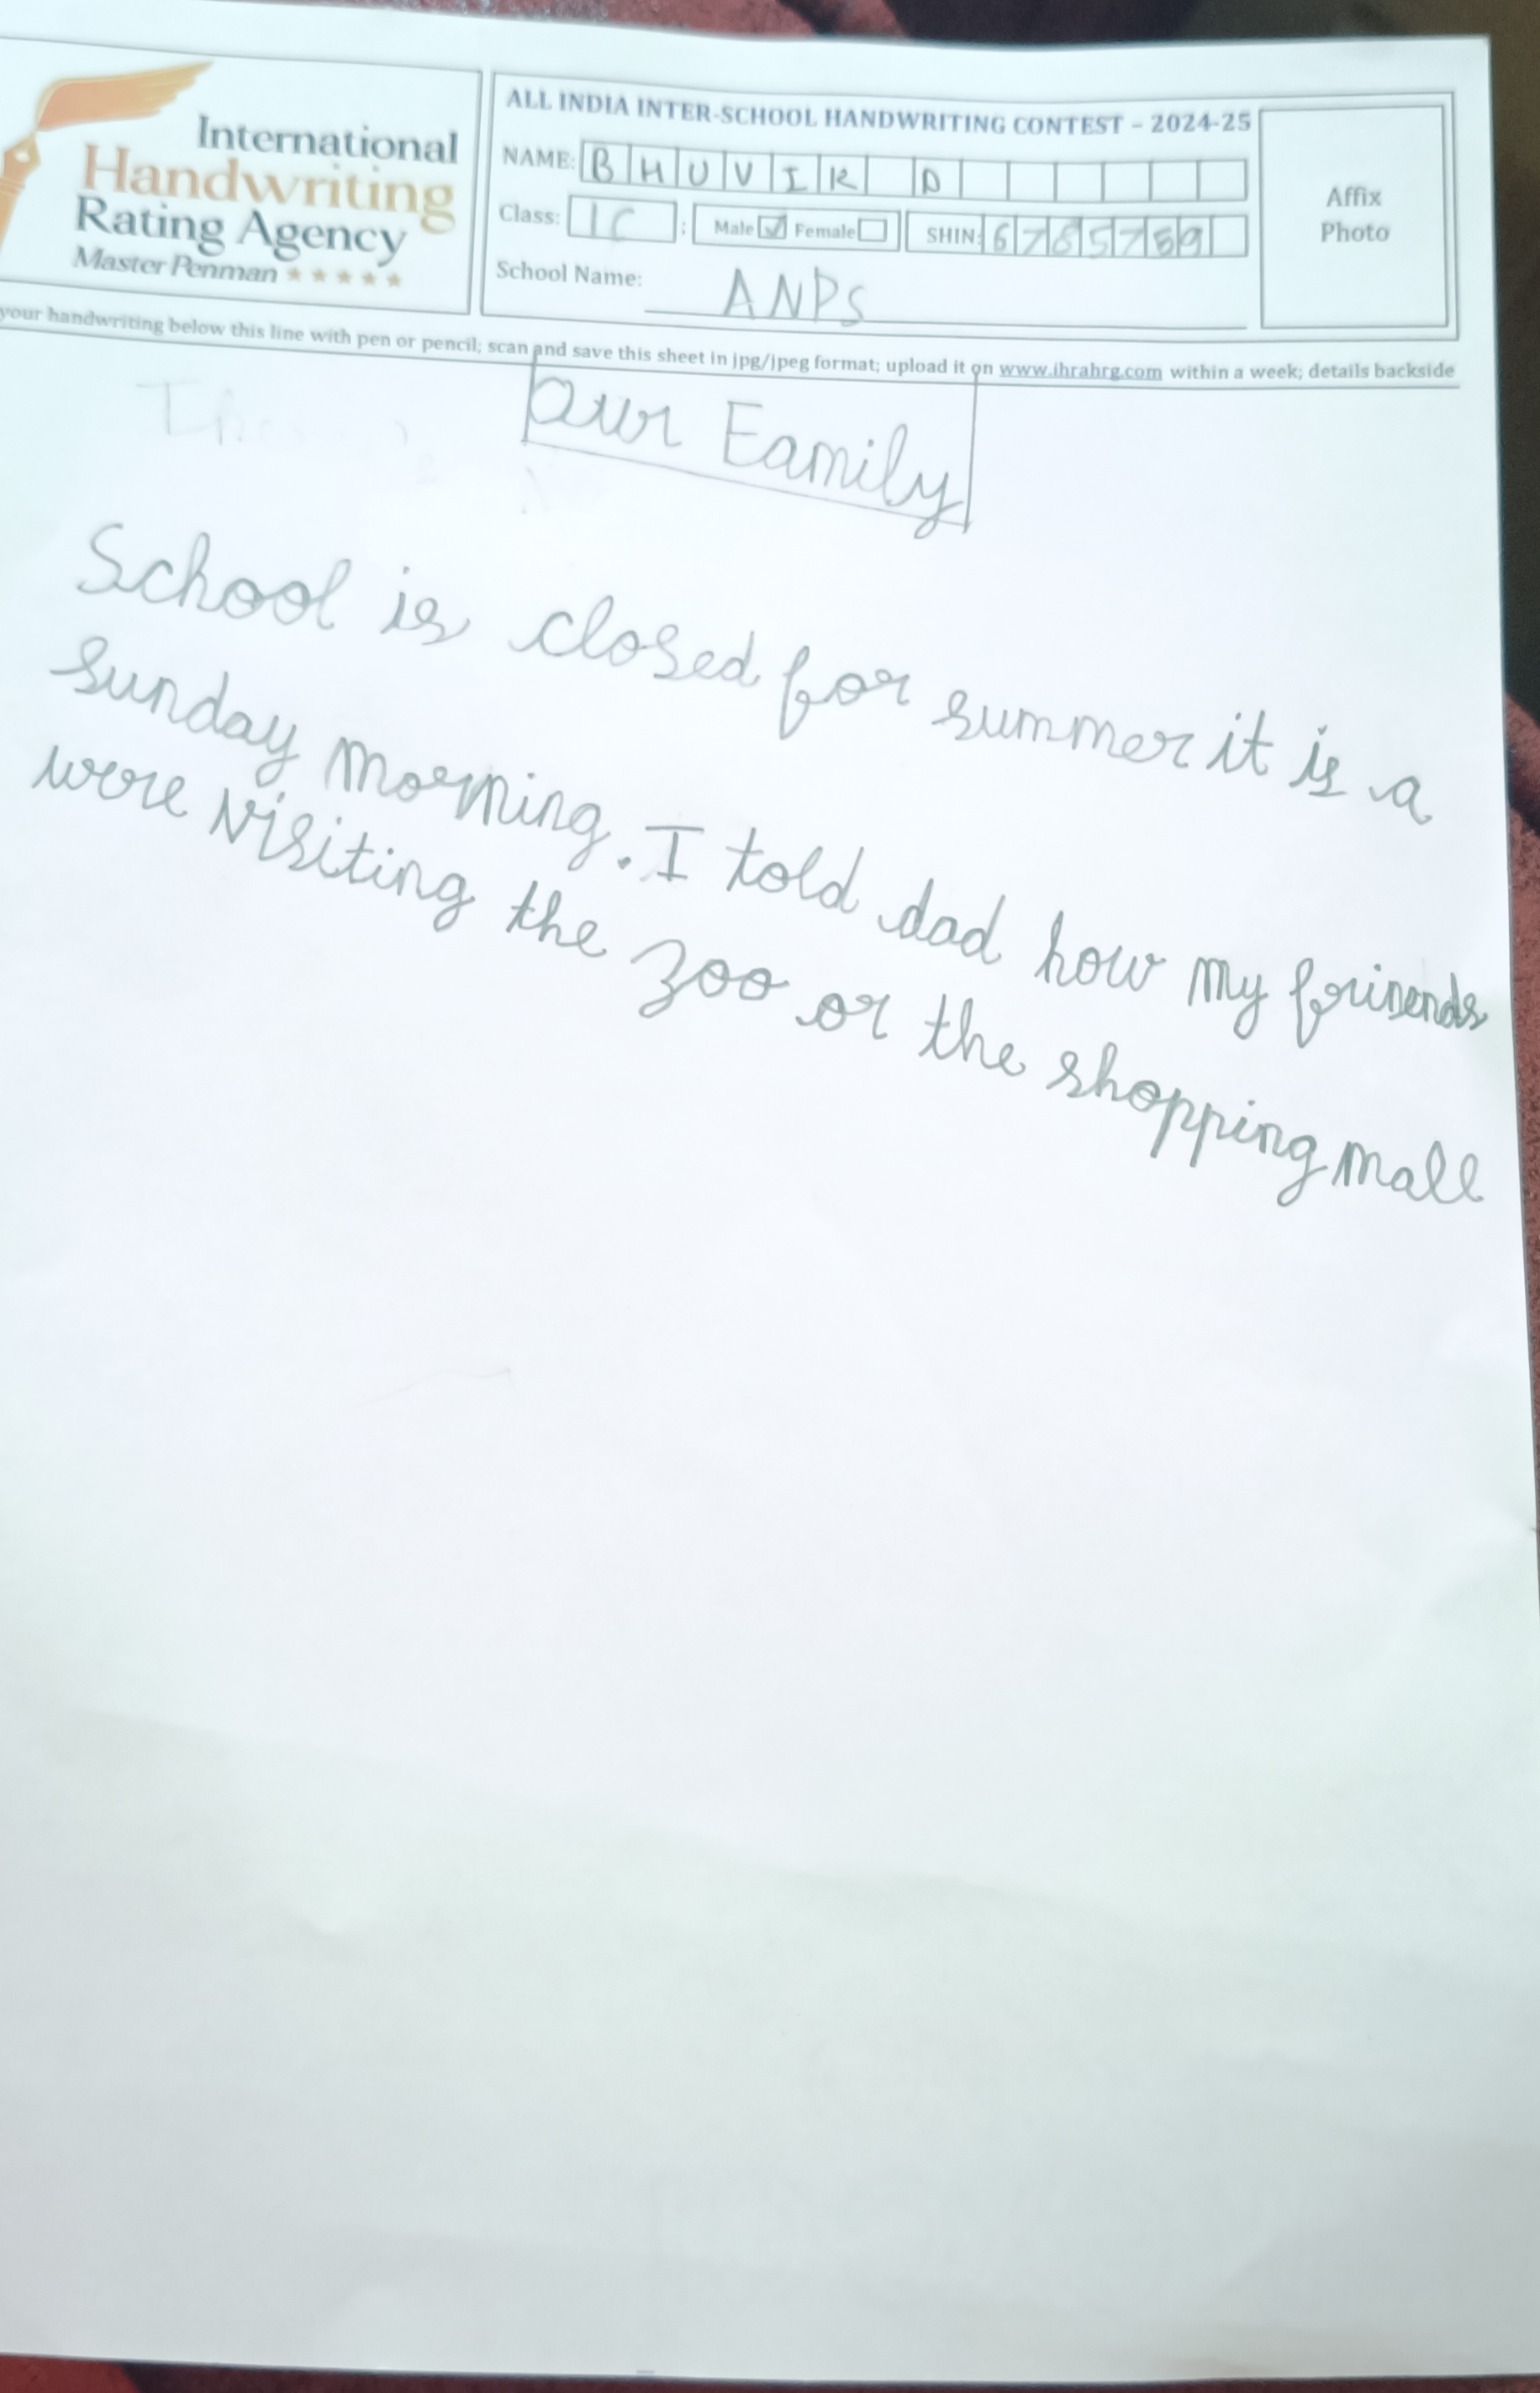 International
Handwriting
Rating Agency
Master Penman
ALL INDIA INTER-SCHOOL HANDWRITING CONTEST – 2024-25
NAME: BHUVIK D
Class: 1C ; Male Female SHIN: 6785759
School Name: ANPS
Affix
Photo
your handwriting below this line with pen or pencil; scan and save this sheet in jpg/jpeg format; upload it on www.ihrahrg.com within a week; details backside
Our Eamily
School is closed for summer it is a
sunday morning. I told dad how my frinends
were visiting the zoo or the shopping mall